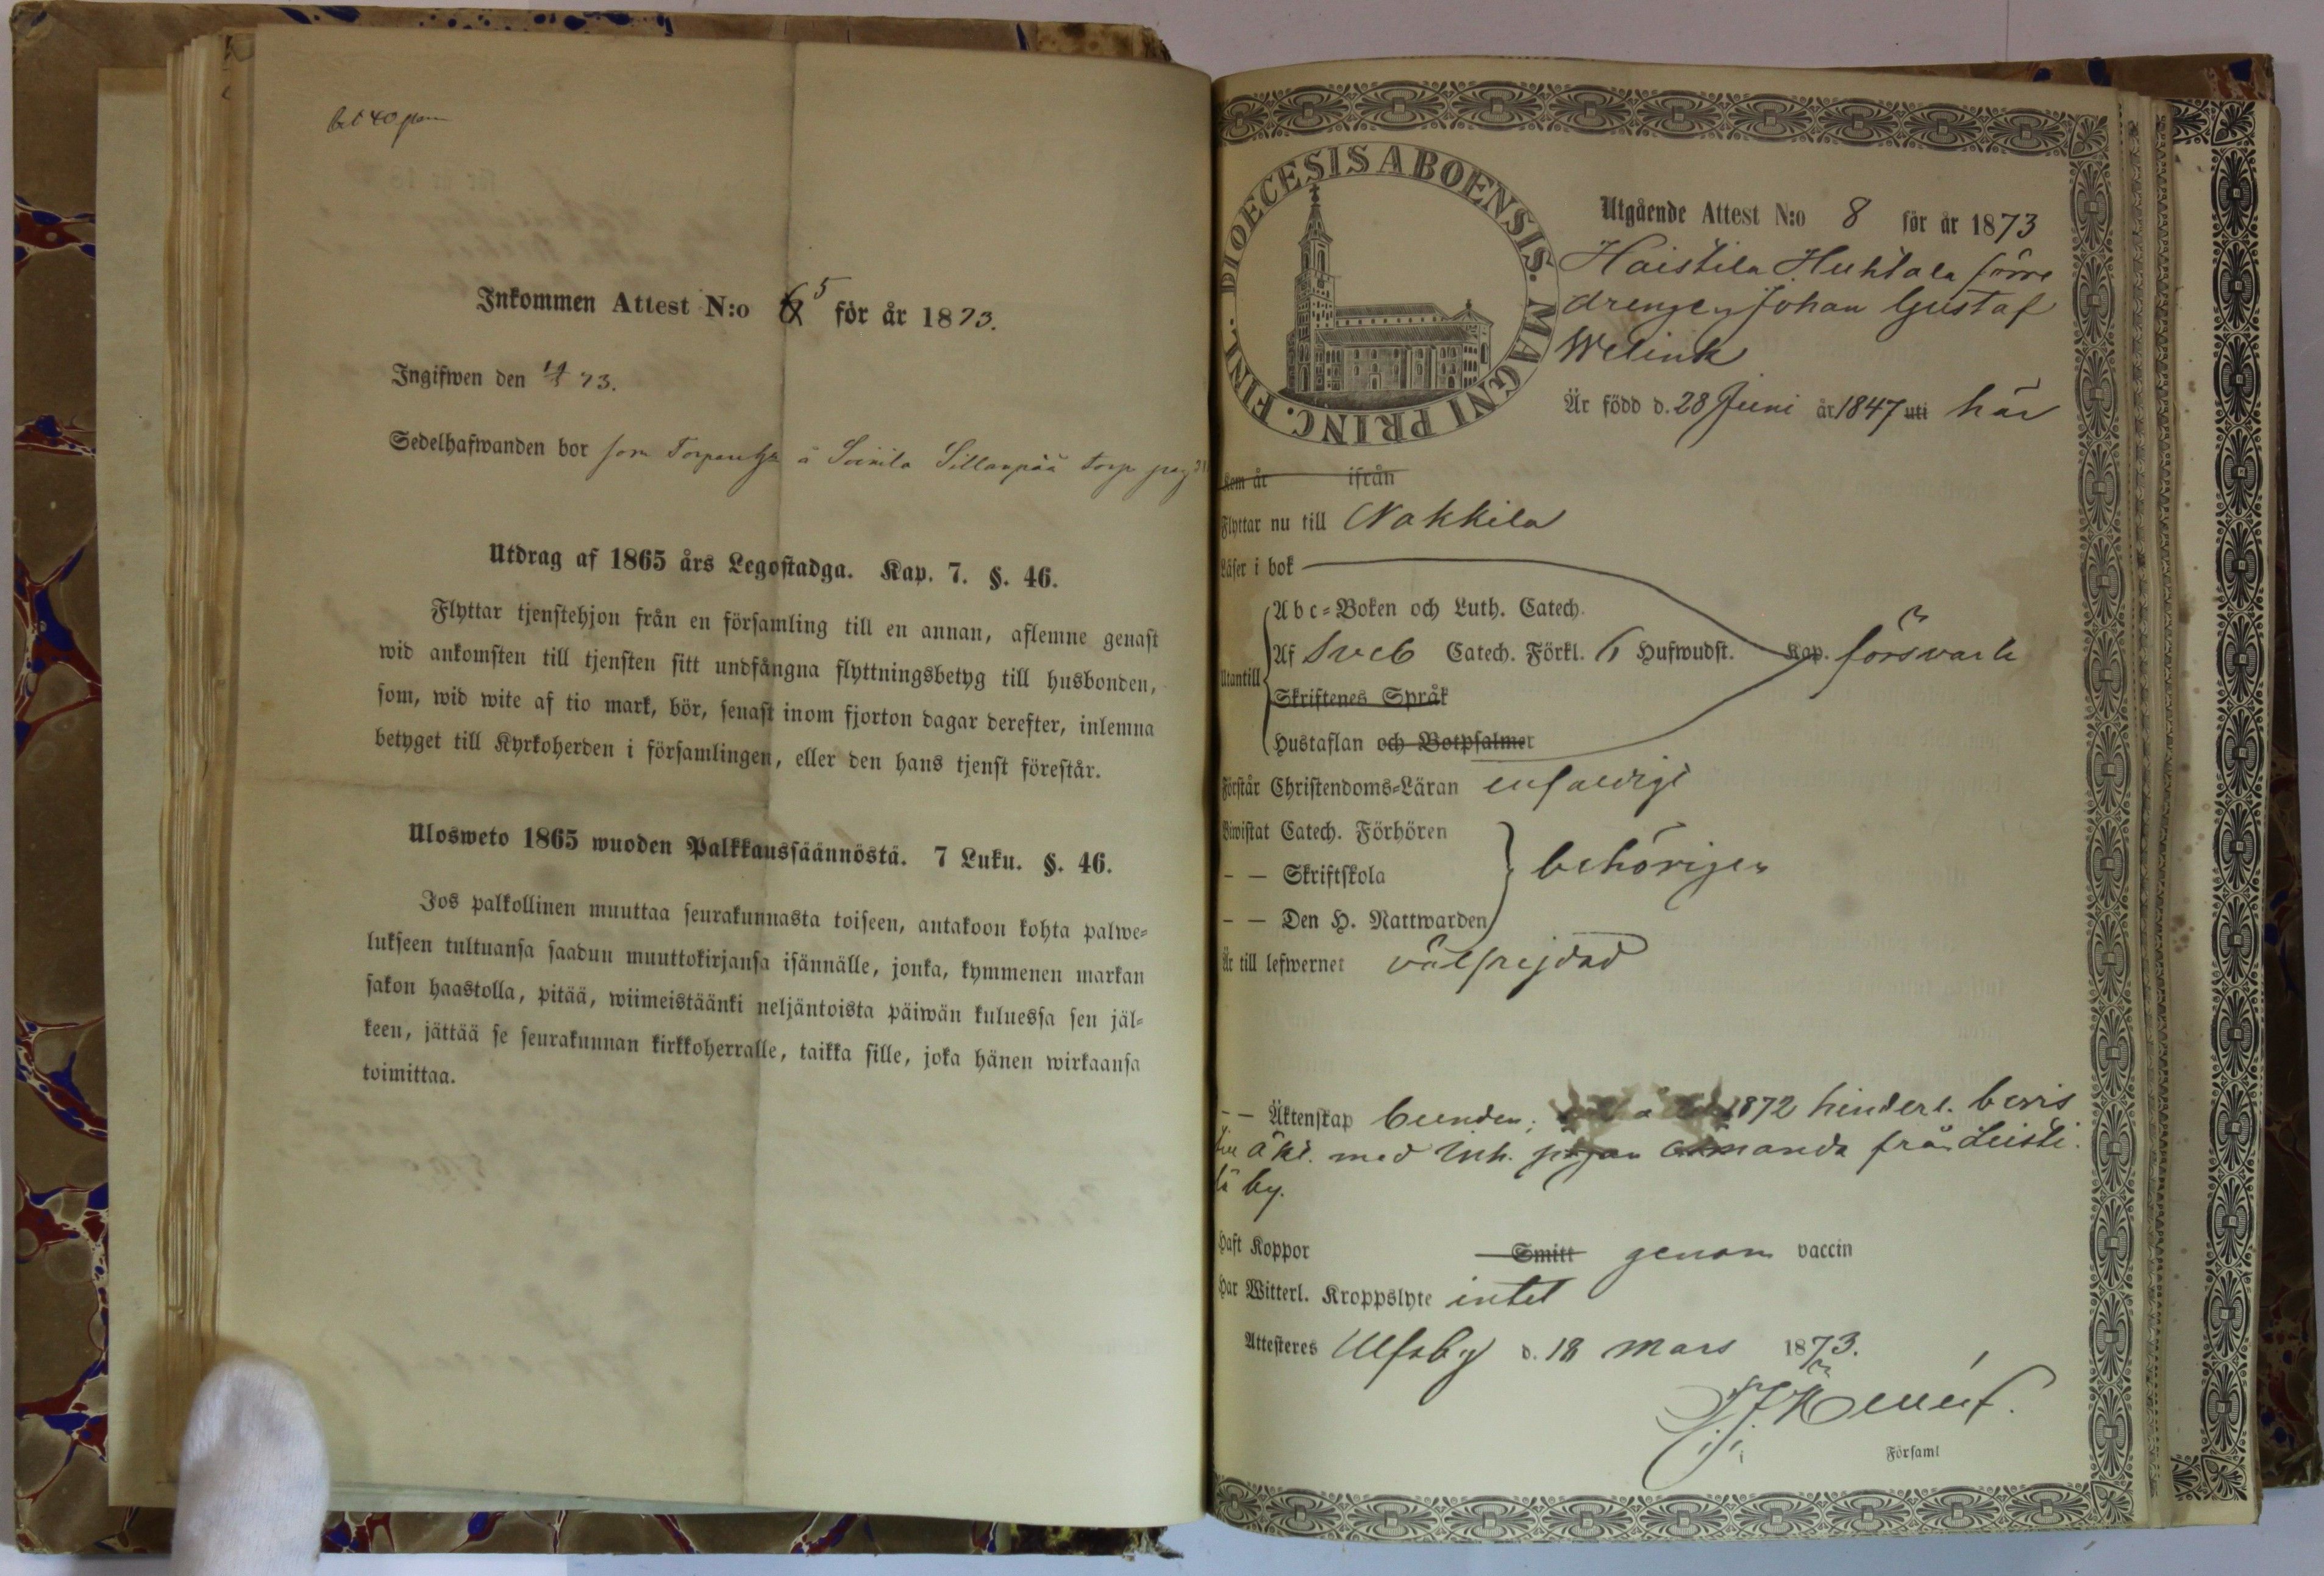 Inkommen Attest N:o 5 för år 1873.
Ingifwen den 73.
Sedelhafwanden bor som å Soinila Sillanpää torp pag
Utdrag af 1865 års Legostadga. Kap. 7. §. 46.
Flyttar tjenstehjon från en församling till en annan, aflemne genast
wid ankomsten till tjensten sitt undfångna flyttningsbetyg till husbonden,
som, wid wite af tio mark, bör, senast inom fjorton dagar derefter, inlemna
betyget till Kyrkoherden i församlingen, eller den hans tjenst förestår.
Ulosweto 1865 wuoden Palkkaussäännöstä. 7 Luku. §. 46.
Jos palkollinen muuttaa seurakunnasta toiseen, antakoon kohta palwe=
lukseen tultuansa saadun muuttokirjansa isännälle, jonka, kymmenen markan
sakon haastolla, pitää, wiimeistäänki neljäntoista päiwän kuluessa sen jäl=
keen, jättää se seurakunnan kirkkoherralle, taikka sille, joka hänen wirkaansa
toimittaa.
FINL. DIOECESIS ABOENSIS. MAGNI PRINC.
Utgående Attest N:o 8 för år 1873
Haistila Huhtala förre
drengen Johan Gustaf
Welink
Är född d. 28 Juni år 1847 uti här
Kom år ifrån
Flyttar nu till Nakkila
Läser i bok
Abc=Boken och Luth. Catech.
Utantill
Af Sveb Catech. Förkl. 6 Hufwudst. Kap. försvarl
Skriftenes Språk
Hustaflan och Botpsalmer
Förstår Christendoms=Läran enfaldigt
Biwistat Catech. Förhören
– – Skriftskola behörigen
– – Den H. Nattwarden
Är till lefwernet välfrejdad
– – Äktenskap bunden; 1872 hinderl. bevis
till äkt. med Inh. pigan Amanda från Leisti
lä by.
Haft Koppor Smitt genom vaccin
Har Witterl. Kroppslyte intet
Attesteres Ulfsby d. 18 Mars 1873.
i Församl